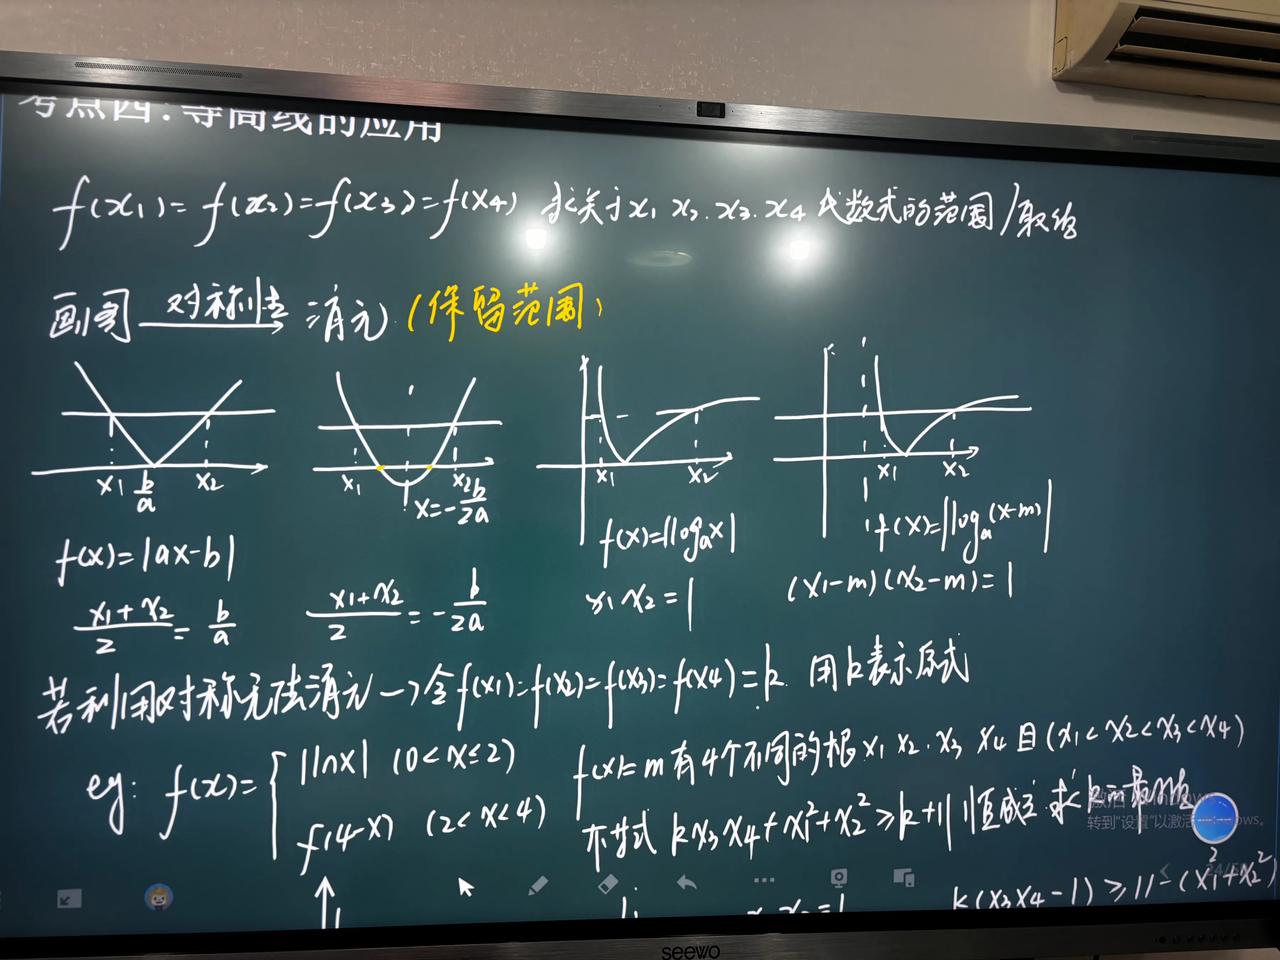 考点四:等高线的应用
f(x1)=f(x2)=f(x3)=f(x4) 求关于x1 x2.x3.x4 代数式的范围/取值
画图 对称性 消元 (保留范围)
x1 b/a x2
x1 x2 x=-b/2a
x1 x2
x1 x2
f(x)=|ax-b|
f(x)=|logax|
f(x)=|loga(x-m)|
(x1+x2)/2=b/a
(x1+x2)/2=-b/2a
x1x2=1
(x1-m)(x2-m)=1
若利用对称无法消元→令f(x1)=f(x2)=f(x3)=f(x4)=k. 用k表示原式
eg: f(x)={
|lnx| (0<x≤2)
f(4-x) (2<x<4)
f(x)=m有4个不同的根x1 x2.x3 x4且(x1<x2<x3<x4)
不等式 kx3x4+x1²+x2²≥k+11恒成立 求k的最小值
激活 Windows
转到"设置"以激活 Windows。
x1x2=1
k(x3x4-1)≥11-(x1²+x2²)
seewo